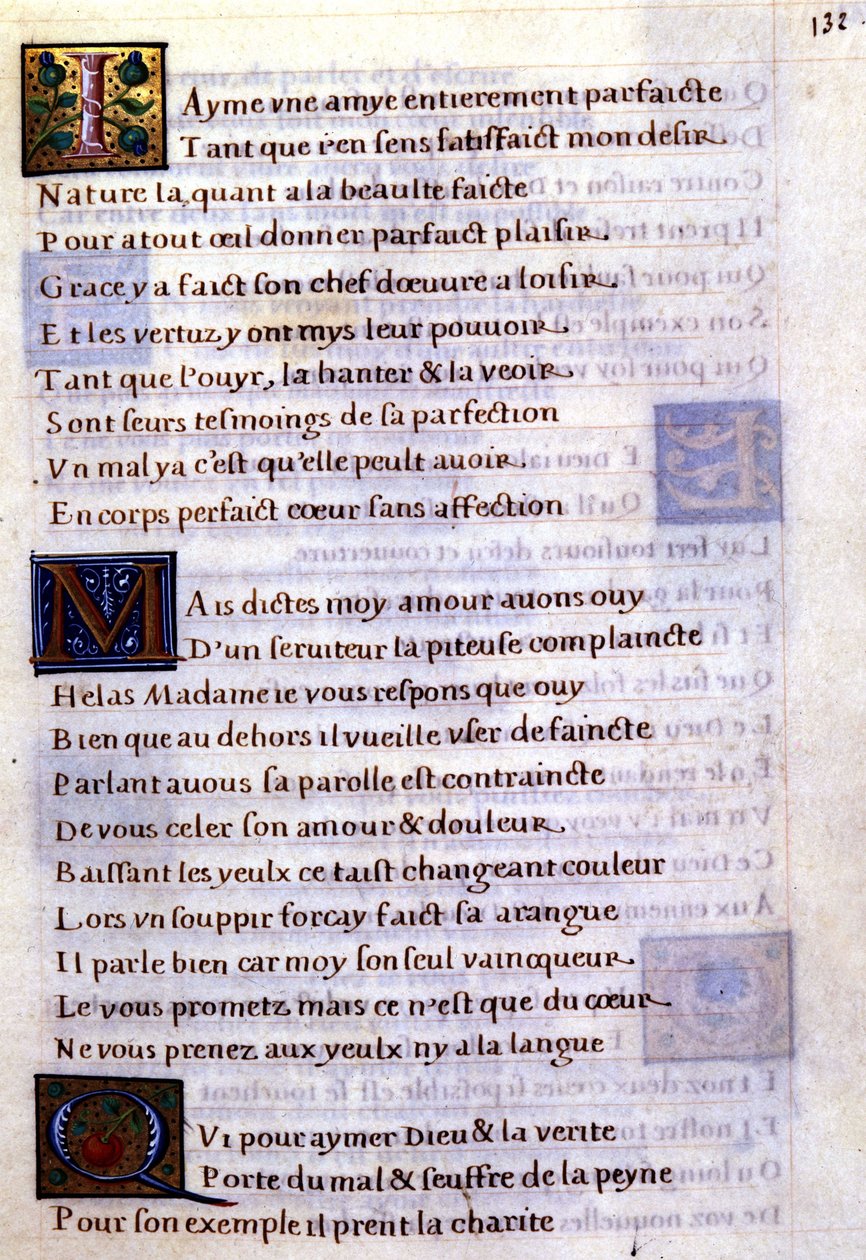 132
IAyme vne amye entierement parfaicte
Tant que i'en sens satisfaict mon desir
Nature la, quant a la beaulte faicte
Pour a tout œil donner parfaict plaisir
Grace y a faict son chef dœuure a loisir
Et les vertuz y ont mys leur pouuoir
Tant que l'ouyr, la hanter & la veoir
Sont seurs tesmoings de sa parfection
Vn mal ya c'est qu'elle peult auoir
En corps perfaict cœur sans affection
MAis dictes moy amour auons ouy
D'un seruiteur la piteuse complaincte
Helas Madame ie vous respons que ouy
Bien que au dehors il vueille vser de faincte
Parlant auous sa parolle est contraincte
De vous celer son amour & douleur
Baissant les yeulx ce taist changeant couleur
Lors vn souppir forcay faict sa arangue
Il parle bien car moy son seul vaincqueur
Le vous prometz mais ce n'est que du cœur
Ne vous prenez aux yeulx ny a la langue
QVi pour aymer Dieu & la verite
Porte du mal & seuffre de la peyne
Pour son exemple il prent la charite